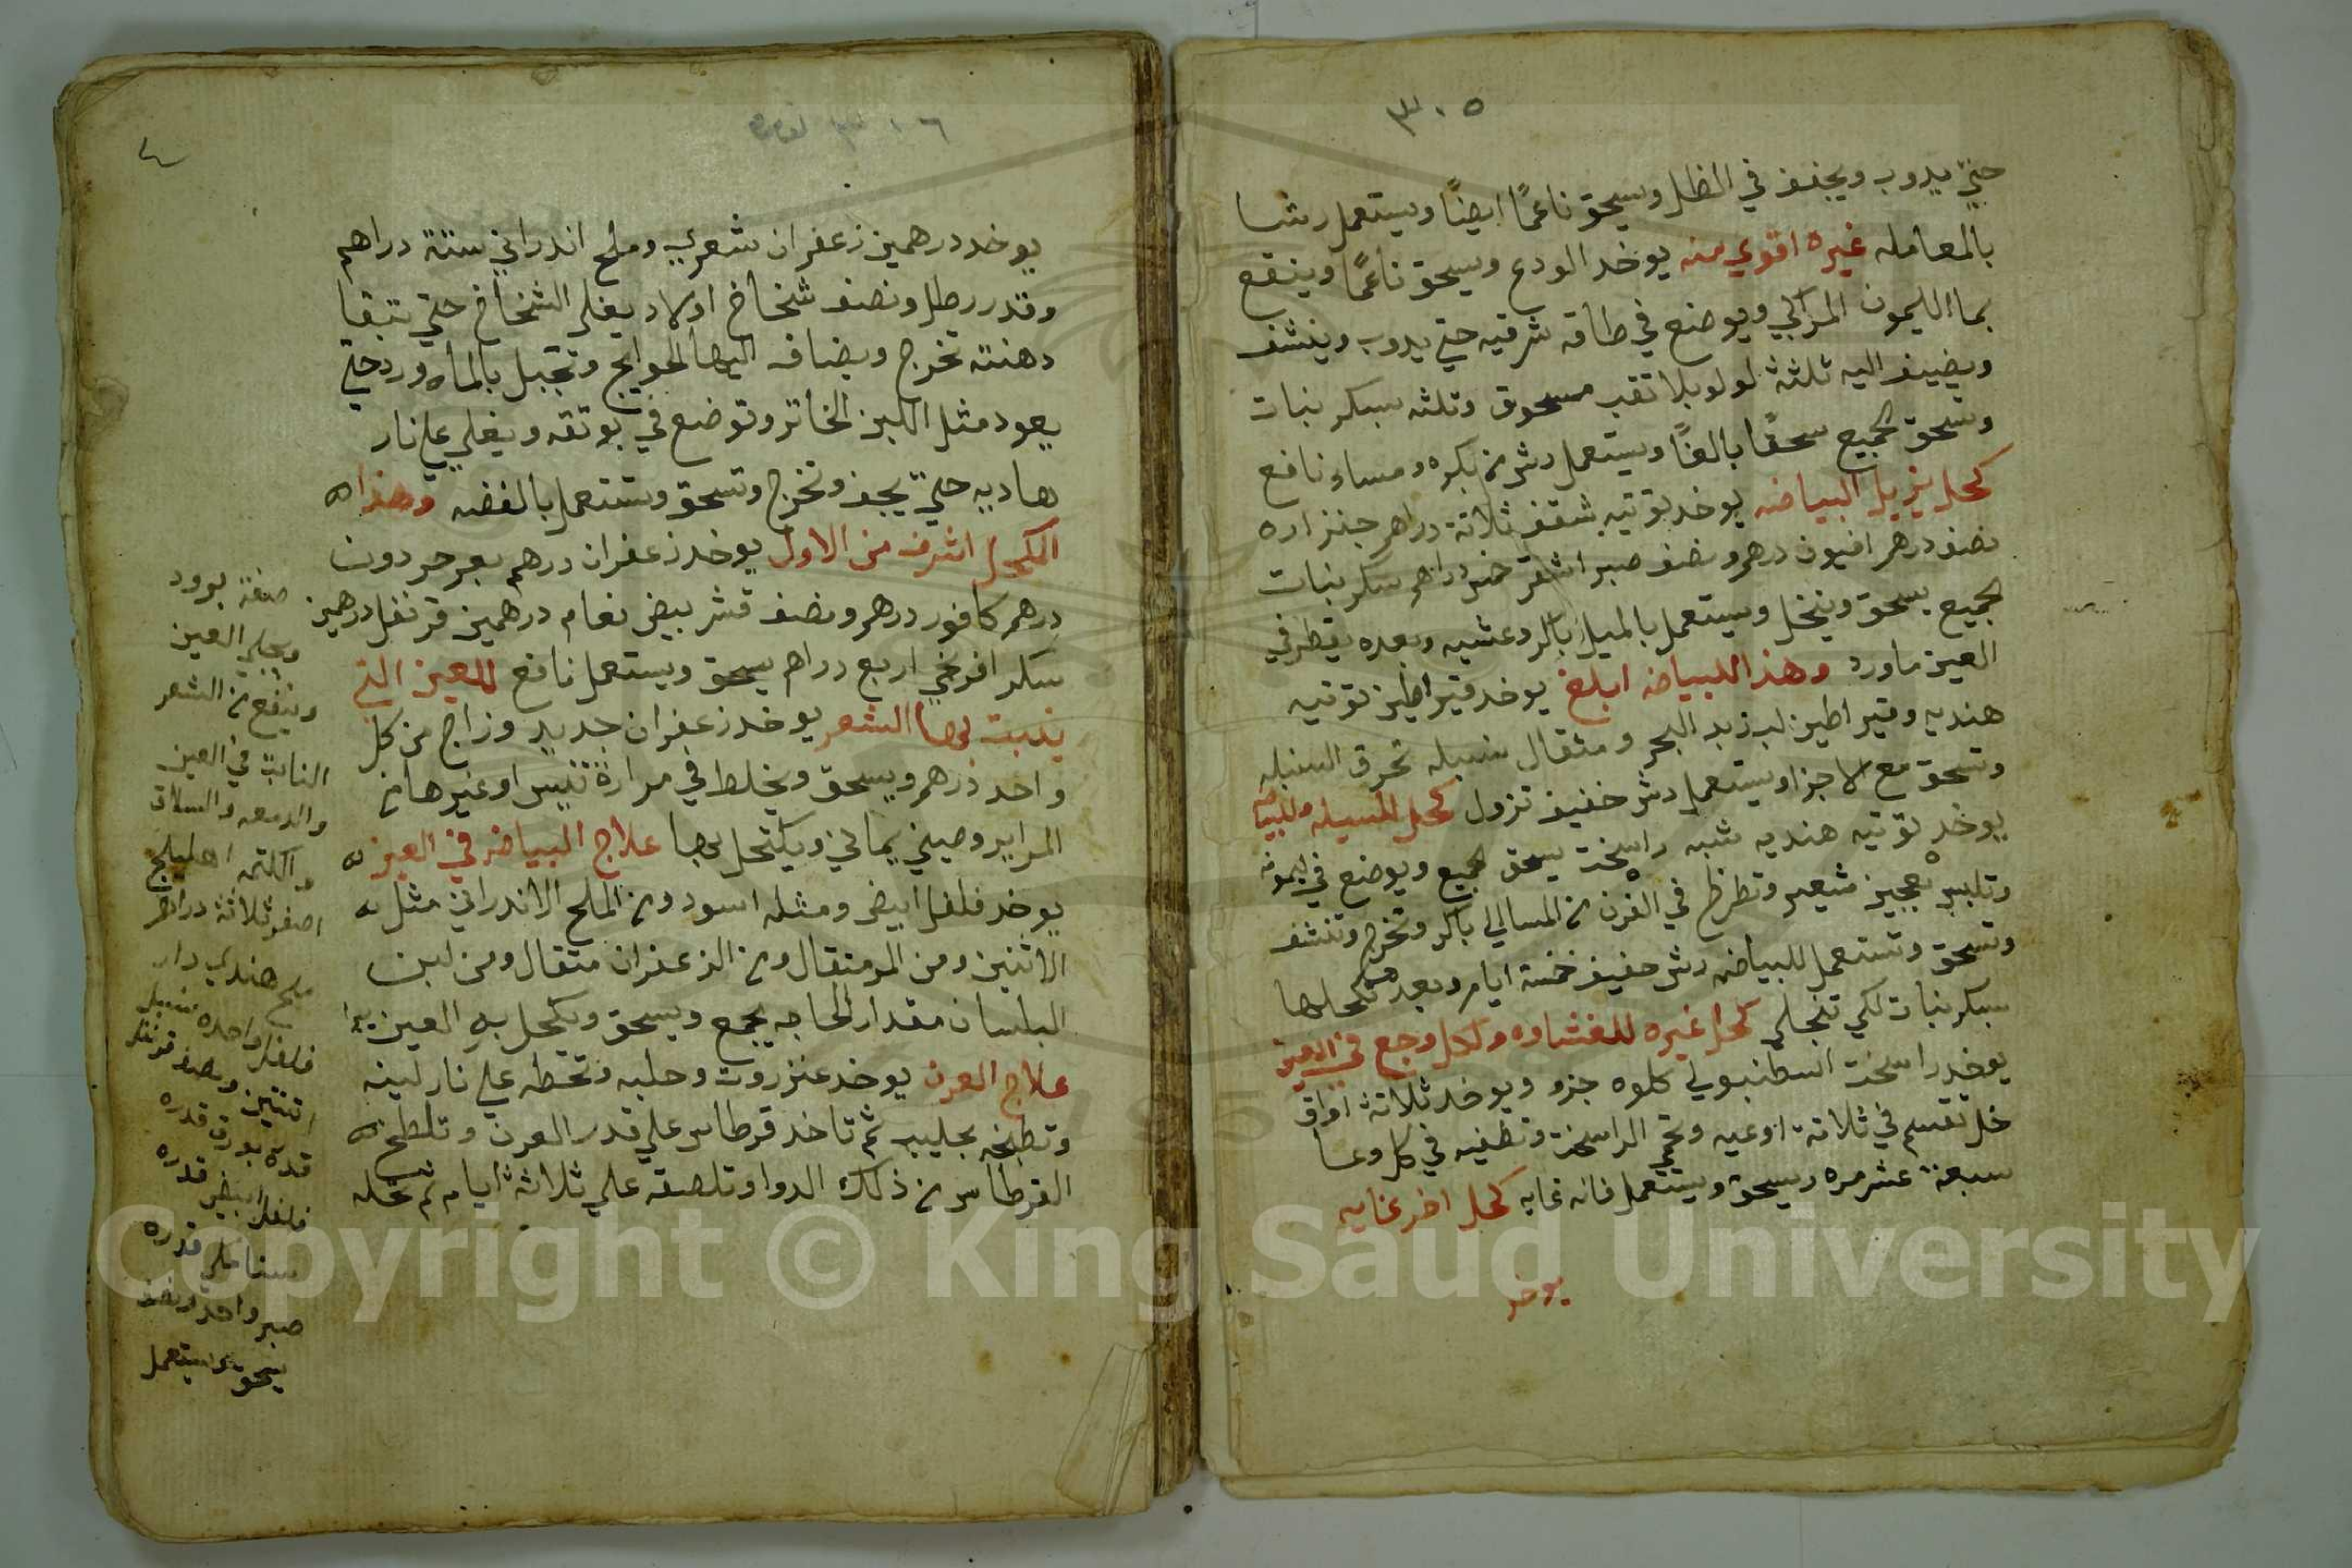 ٣٠٥
حتي يدوب ويجفف في الظل ويسحق ناعمًا ايضًا ويستعمل رشا
بالمعامله غيره اقوي منه يوخد الودع ويسحق ناعمًا وينقع
بما الليمون المراكبي ويوضع في طاقه شرقيه حتي يدوب وينشف
ويضيف اليه ثلثة لولو بلا تقب مسحوق وثلثه سكر نبات
وتسحق الجميع سحقًا بالغًا ويستعمل رش بكره ومساء نافع
كحل يزيل البياض يوخد توتيه شقف ثلاثة دراهم جنزاره
نصف درهم افيون درهم ونصف صبر اشقر خمس دراهم سكر نبات
الجميع يسحق وينخل ويستعمل بالميل باكر وعشيه وبعده يقطر في
العين ماورد وهذا للبياض ابلغ يوخد قيراطين توتيه
هنديه وقيراطين لب زبد البحر ومثقال سنبله تحرق السنبله
وتسحق مع الاجزا ويستعمل رش خفيف تزول كحل للسبله وللبياض
يوخد توتيه هنديه شبه راسخت يسحق الجميع ويوضع في ليمونه
وتلبس بعجين شعير وتطرح في الفرن باكر وتخرج وتنشف
وتسحق وتستعمل للبياض رش خفيف خمسة ايام وبعدهم تكحلها
بسكر نبات لكي تنجلي كحل غيره للغشاوه ولكل وجع في العين
يوخد راسخت اسطنبولي كلوه جزو ويوخد ثلاثة اواق
خل تقسم في ثلاثة اوعيه وتحمي الراسخت وتطفيه في كل وعا
سبعة عشر مره ويسحق ويستعمل فانه غايه كحل اخر غايه
يوخد
٣٠٦
٤
يوخد درهمين زعفران شعري وملح اندراني ستة دراهم
وقدر رطل ونصف شخاخ اولاد يغلي الشخاخ حتي تبقا
دهنته تخرج ويضاف اليها الحوايج وتجبل بالماورد حتي
يعود مثل اللبن الخاتر وتوضع في بوتقه ويغلي علي نار
هاديه حتي يجف وتخرج وتسحق وتستعمل بالفضه وهذا
الكحل اشرف من الاول يوخد زعفران درهم بعر حردون
درهم كافور درهم ونصف قشر بيض نعام درهمين قرنفل درهمين
سكر افرنجي اربع دراهم يسحق ويستعمل نافع للعين التي
ينبت بها الشعر يوخد زعفران جديد وزاج من كل
واحد درهم ويسحق ويخلط في مرارة تيس او غيرها من
المراير وصيني يماني ويكتحل بها علاج البياض في العين
يوخد فلفل ابيض ومثله اسود ومن الملح الاندراني مثل
الاثنين ومن المر مثقال ومن الزعفران مثقال ومن لبن
البلسان مقدار الحاجه يجمع ويسحق ويكحل به العين
علاج العرن يوخد عنزروت وحلبه وتحطه علي نار لينه
وتطبخه بحليب ثم تاخد قرطاس علي قدر العرن وتلطخ
القرطاس من ذلك الدوا وتلصقه علي ثلاثة ايام ثم تحله
صفة برود
ويجلي العين
وينفع من الشعر
النابت في العين
والدمعه والسلاق
والكتمه اهليلج
اصفر ثلاثة دراهم
ملح هندي دار
فلفل واحده سنبل
اتنين ونصف قرنفل
قدره بورق قدره
فلفل ابيض قدره
سنامكي قدره
صبر واحد ونصف
يسحق ويستعمل